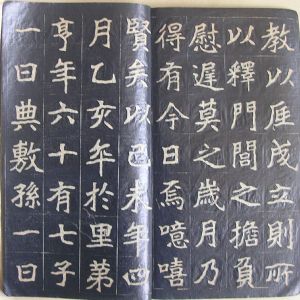 教以成立則所
以釋門閭之擔負
慰遲莫之歲月乃
得有今日焉噫嘻
賢矣以己未年四
月乙亥卒於里第
享年六十有七子
一曰典敷孫一曰